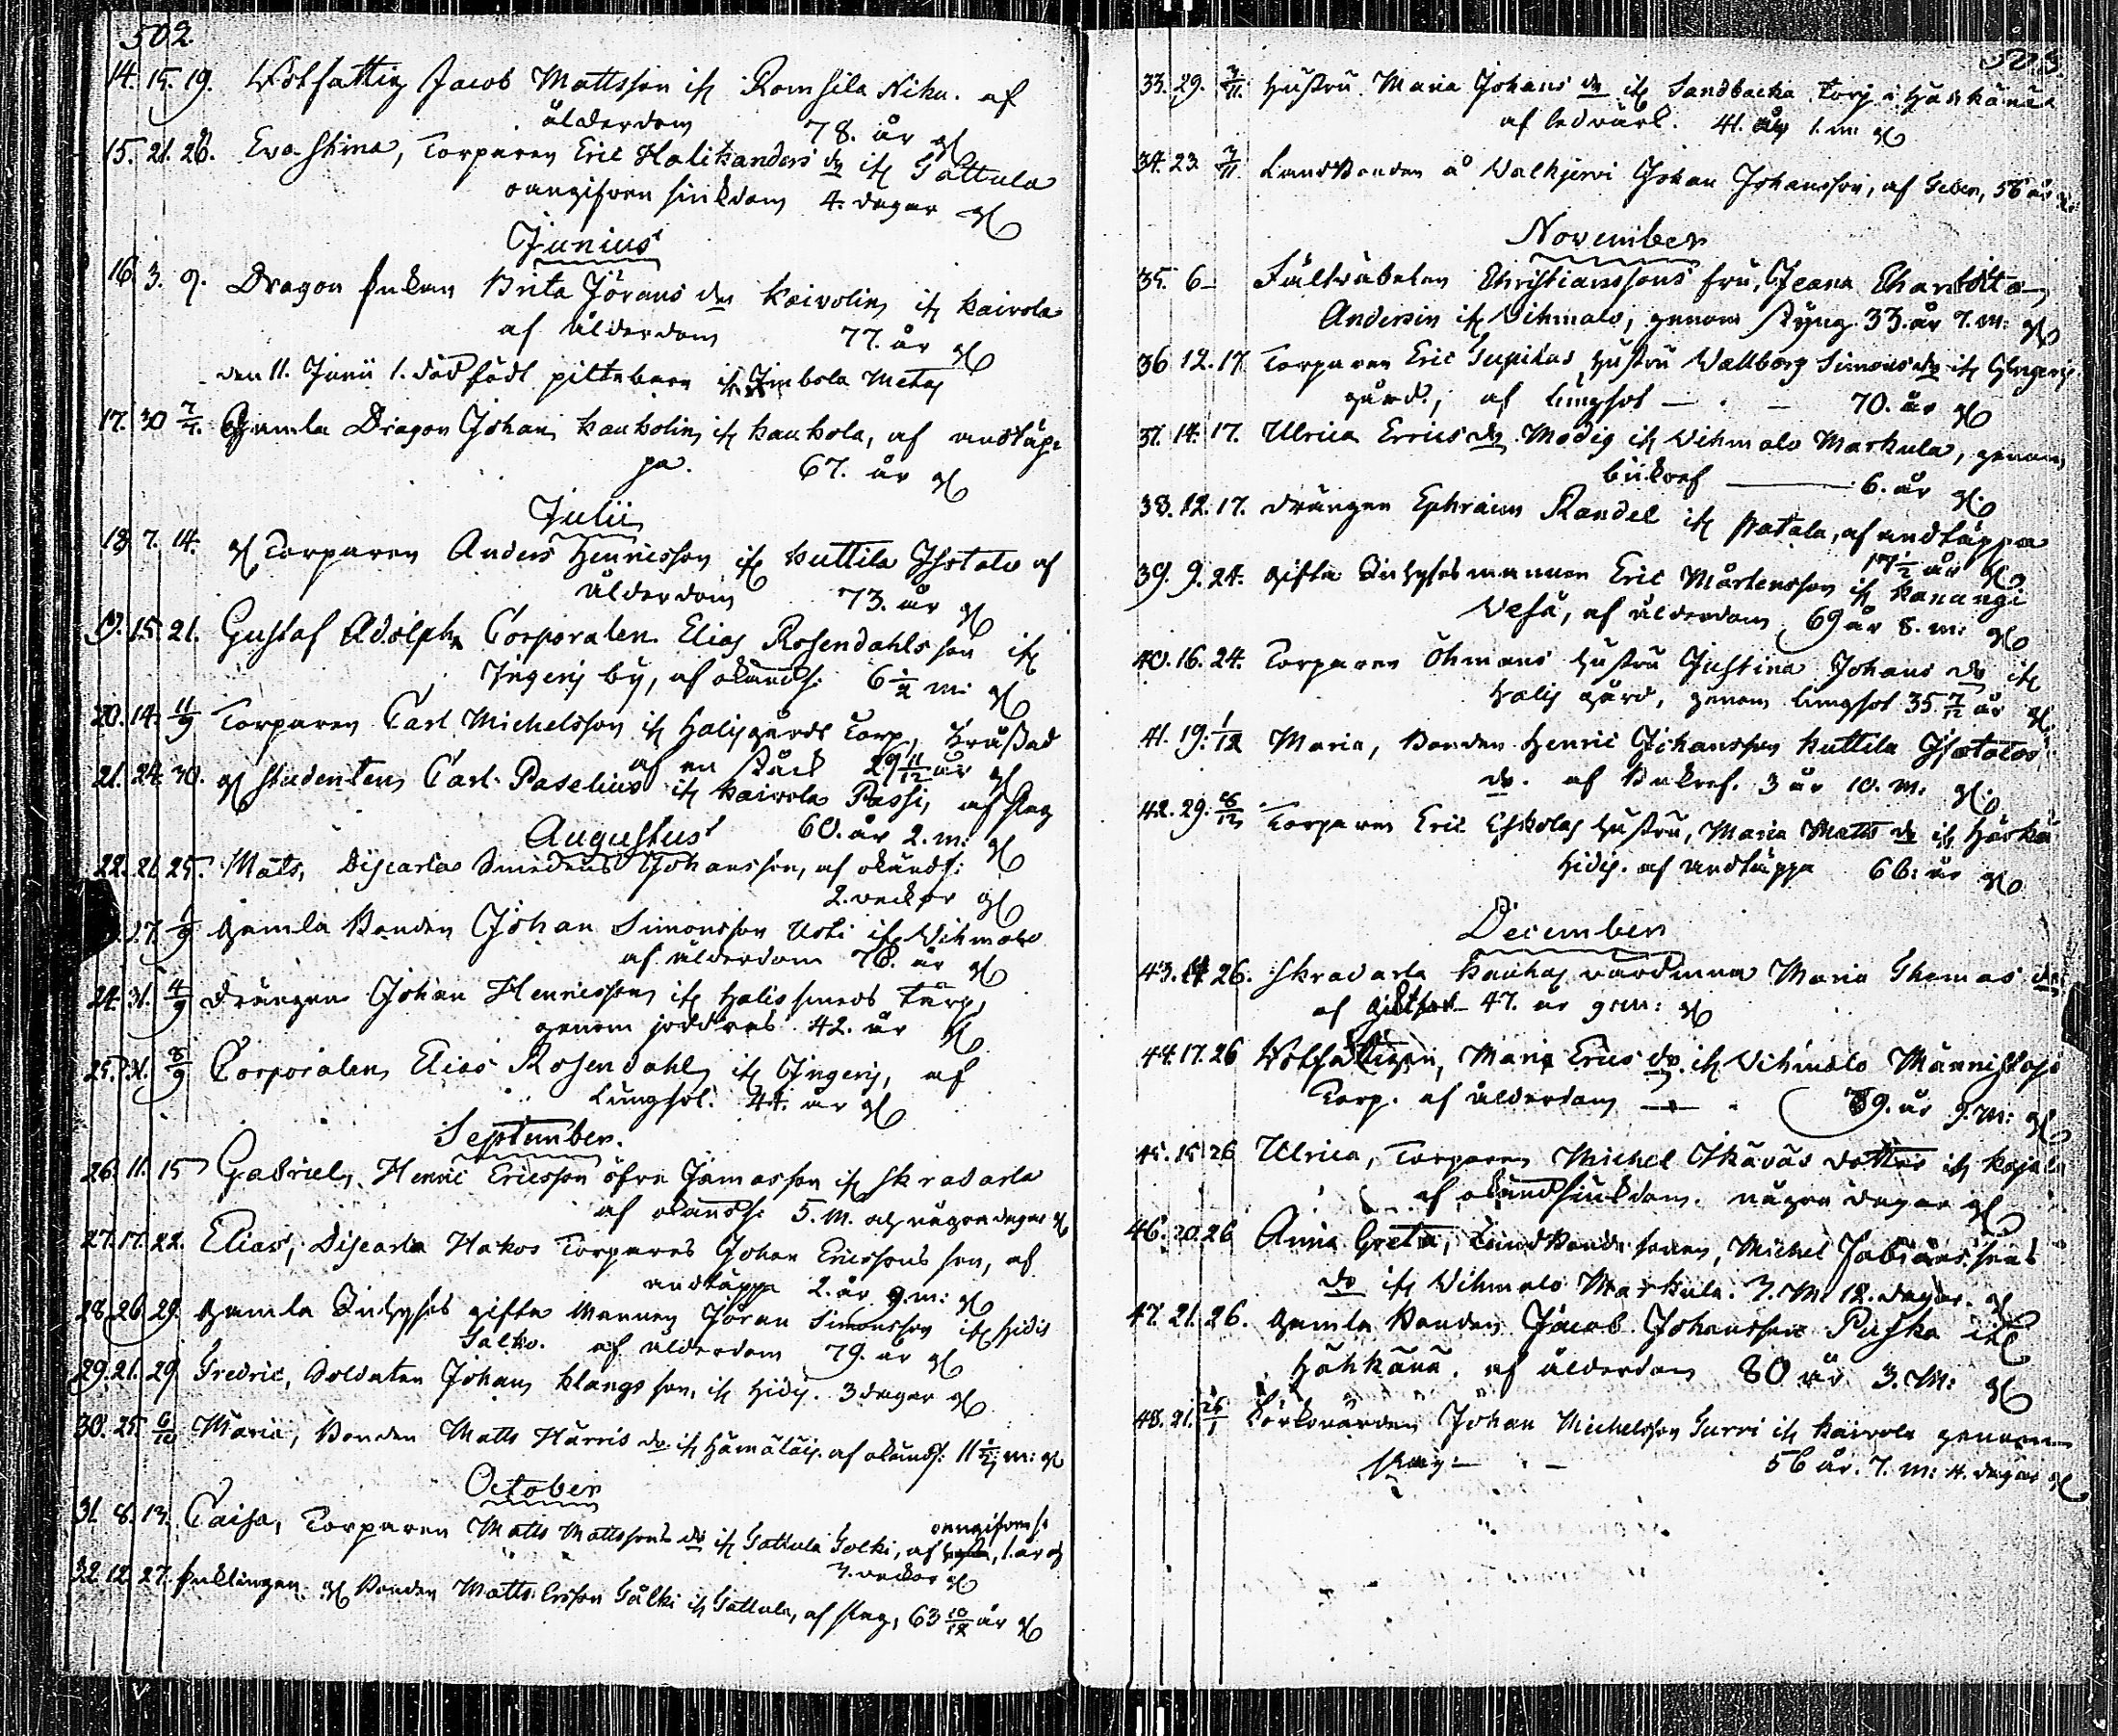 502.
14. 15. 19. Jacob Mattsson i fr Romsila Niku. af
ålderdom 78. år
15. 21. 26. Eva Stina, Torparen Eric Halikanders dr ifr Tattula
oangifven siukdom 4. dagar
Junius
16. 3. 9. Dragon Enkan Brita Jörans dr Kaivolin ifr Kaivola
af ålderdom 77. år
den 11. Junii 1. död född piltebarn ifr
17. 30 7/7. Gamla Dragon Johan Kaukolin ifr Kaukola, af andtäp-
pa. 67. år
Julii
18. 7. 14. Torparen Anders Henricsson ifr Kuttila Isotalo af
ålderdom 73. år
19. 15. 21. Gustaf Adolph, Corporalen Elias Rosendahls son ifr
Ingeris by, af okänds: 6 1/2 m:
20. 14. 11/9 Torparen Carl Michelsson ifr Halisgårds Torp, kråssad
af en 29 11/12 år
21. 24. 30. Studenten Carl Paselius ifr Kaivola Passi, af slag
60. år 2. m:
Augustus
22. 21. 25. Mats, Discarla Smedens Johansson, af okänds:
2. veckor
27. 1/9 Gamla Bonden Johan Simonsson Uoti ifr Vihmalo
af ålderdom 76. år
24. 31. 4/9 Drängen Johan Henricsson ifr Halis smeds Torp,
genom 42. år
25. 31. 8/9 Corporalen Elias Rosendahl ifr Ingeris, af
Lungsot. 44. år
September.
26. 11. 15 Gabriel, Henric Ericsson öfre Jamas son ifr Skravarla
af okänds: 5. m. och några dagar
27. 17. 22. Elias, Discarla Hakos Torpares Johan Ericssons son, af
andtäppa 2. år 9. m:
28. 26. 29. Gamla Inhyses gifta Mannen Jöran Simonsson ifr Hidis
af ålderdom 79. år
29. 21. 29 Fredric, Soldaten Johan Klangs son, ifr Hidis. 3 dagar
30. 25. 6/10 Maria, Bonden Matts Harris dr ifr Hämäläis. af okänds: 11 1/2 m:
October
31. 8. 13. Caisa, Torparen Matts Mattssons dr ifr Tattula Tolki, af oangifven s: 1. år och
3. veckor
32. 12. 27. Enklingen Bonden Matts Ersson Tålki ifr Tattula, af slag, 63 10/12 år
503.
33. 29. 3/11. Hustru Maria Johans dr ifr Sandbacka Torp i Hähkänä
af ledvärk. 41. år 1. m:
34. 23. 3/11. Landbonden å Valkjervi Johan Johansson, af feber, 56 år
November
35. 6 Fältväbelen Christianssons fru, Jeana Charlotta
Andersin ifr Vihmalo, genom 33. år 7. m:
36. 12. 17. Torparen Eric hustru Wallborg Simons dr ifr
gård, af lungsot 70. år
37. 14. 17. Ulrica Erics dr Modig ifr Vihmalo Markula, genom
bukref 6. år
38. 12. 17. Drängen Ephraim Randel ifr Patala, af andtäppa
17 1/2 år
39. 9. 24. gifta Inhysesmannen Eric Mårtensson ifr Kanungi
Vesa, af ålderdom 69 år 8. m:
40. 16. 24. Torparen Öhmans hustru Justina Johans dr ifr
Halis gård, genom lungsot 35. 7/12 år
41. 19. 1/12 Maria, Bonden Henric Johansson Kuttila Isotalos
dr. af bukref. 3 år 10. m.
42. 29. 8/12 Torparen Eric Eskolas hustru, Maria Matts dr ifr
Hidis. af andtäppa 66. år
December
43. 14. 26. Skravarla Maria Thomas dr
af 47. år 9. m:
44. 17. 26 Maria Erics dr. ifr Vihmalo Männistös
Torp. af ålderdom 79. år 9. m:
45. 15. 26 Ulrica, Torparen Michel dotter ifr
af okänd siukdom. några dagar
46. 20. 26 Anna Greta, Landbonde sonen, Michel Fabianssons
dr ifr Vihmalo Markula. 7. m. 12. dagar.
47. 21. 26. Gamla Bonden Jacob Johansson Puska ifr
Hähkänä. af ålderdom 80 år 3. m:
48. 21. 26/1 Johan Michelsson Turri ifr Kaivola genom
56 år. 7. m: 4. dagar